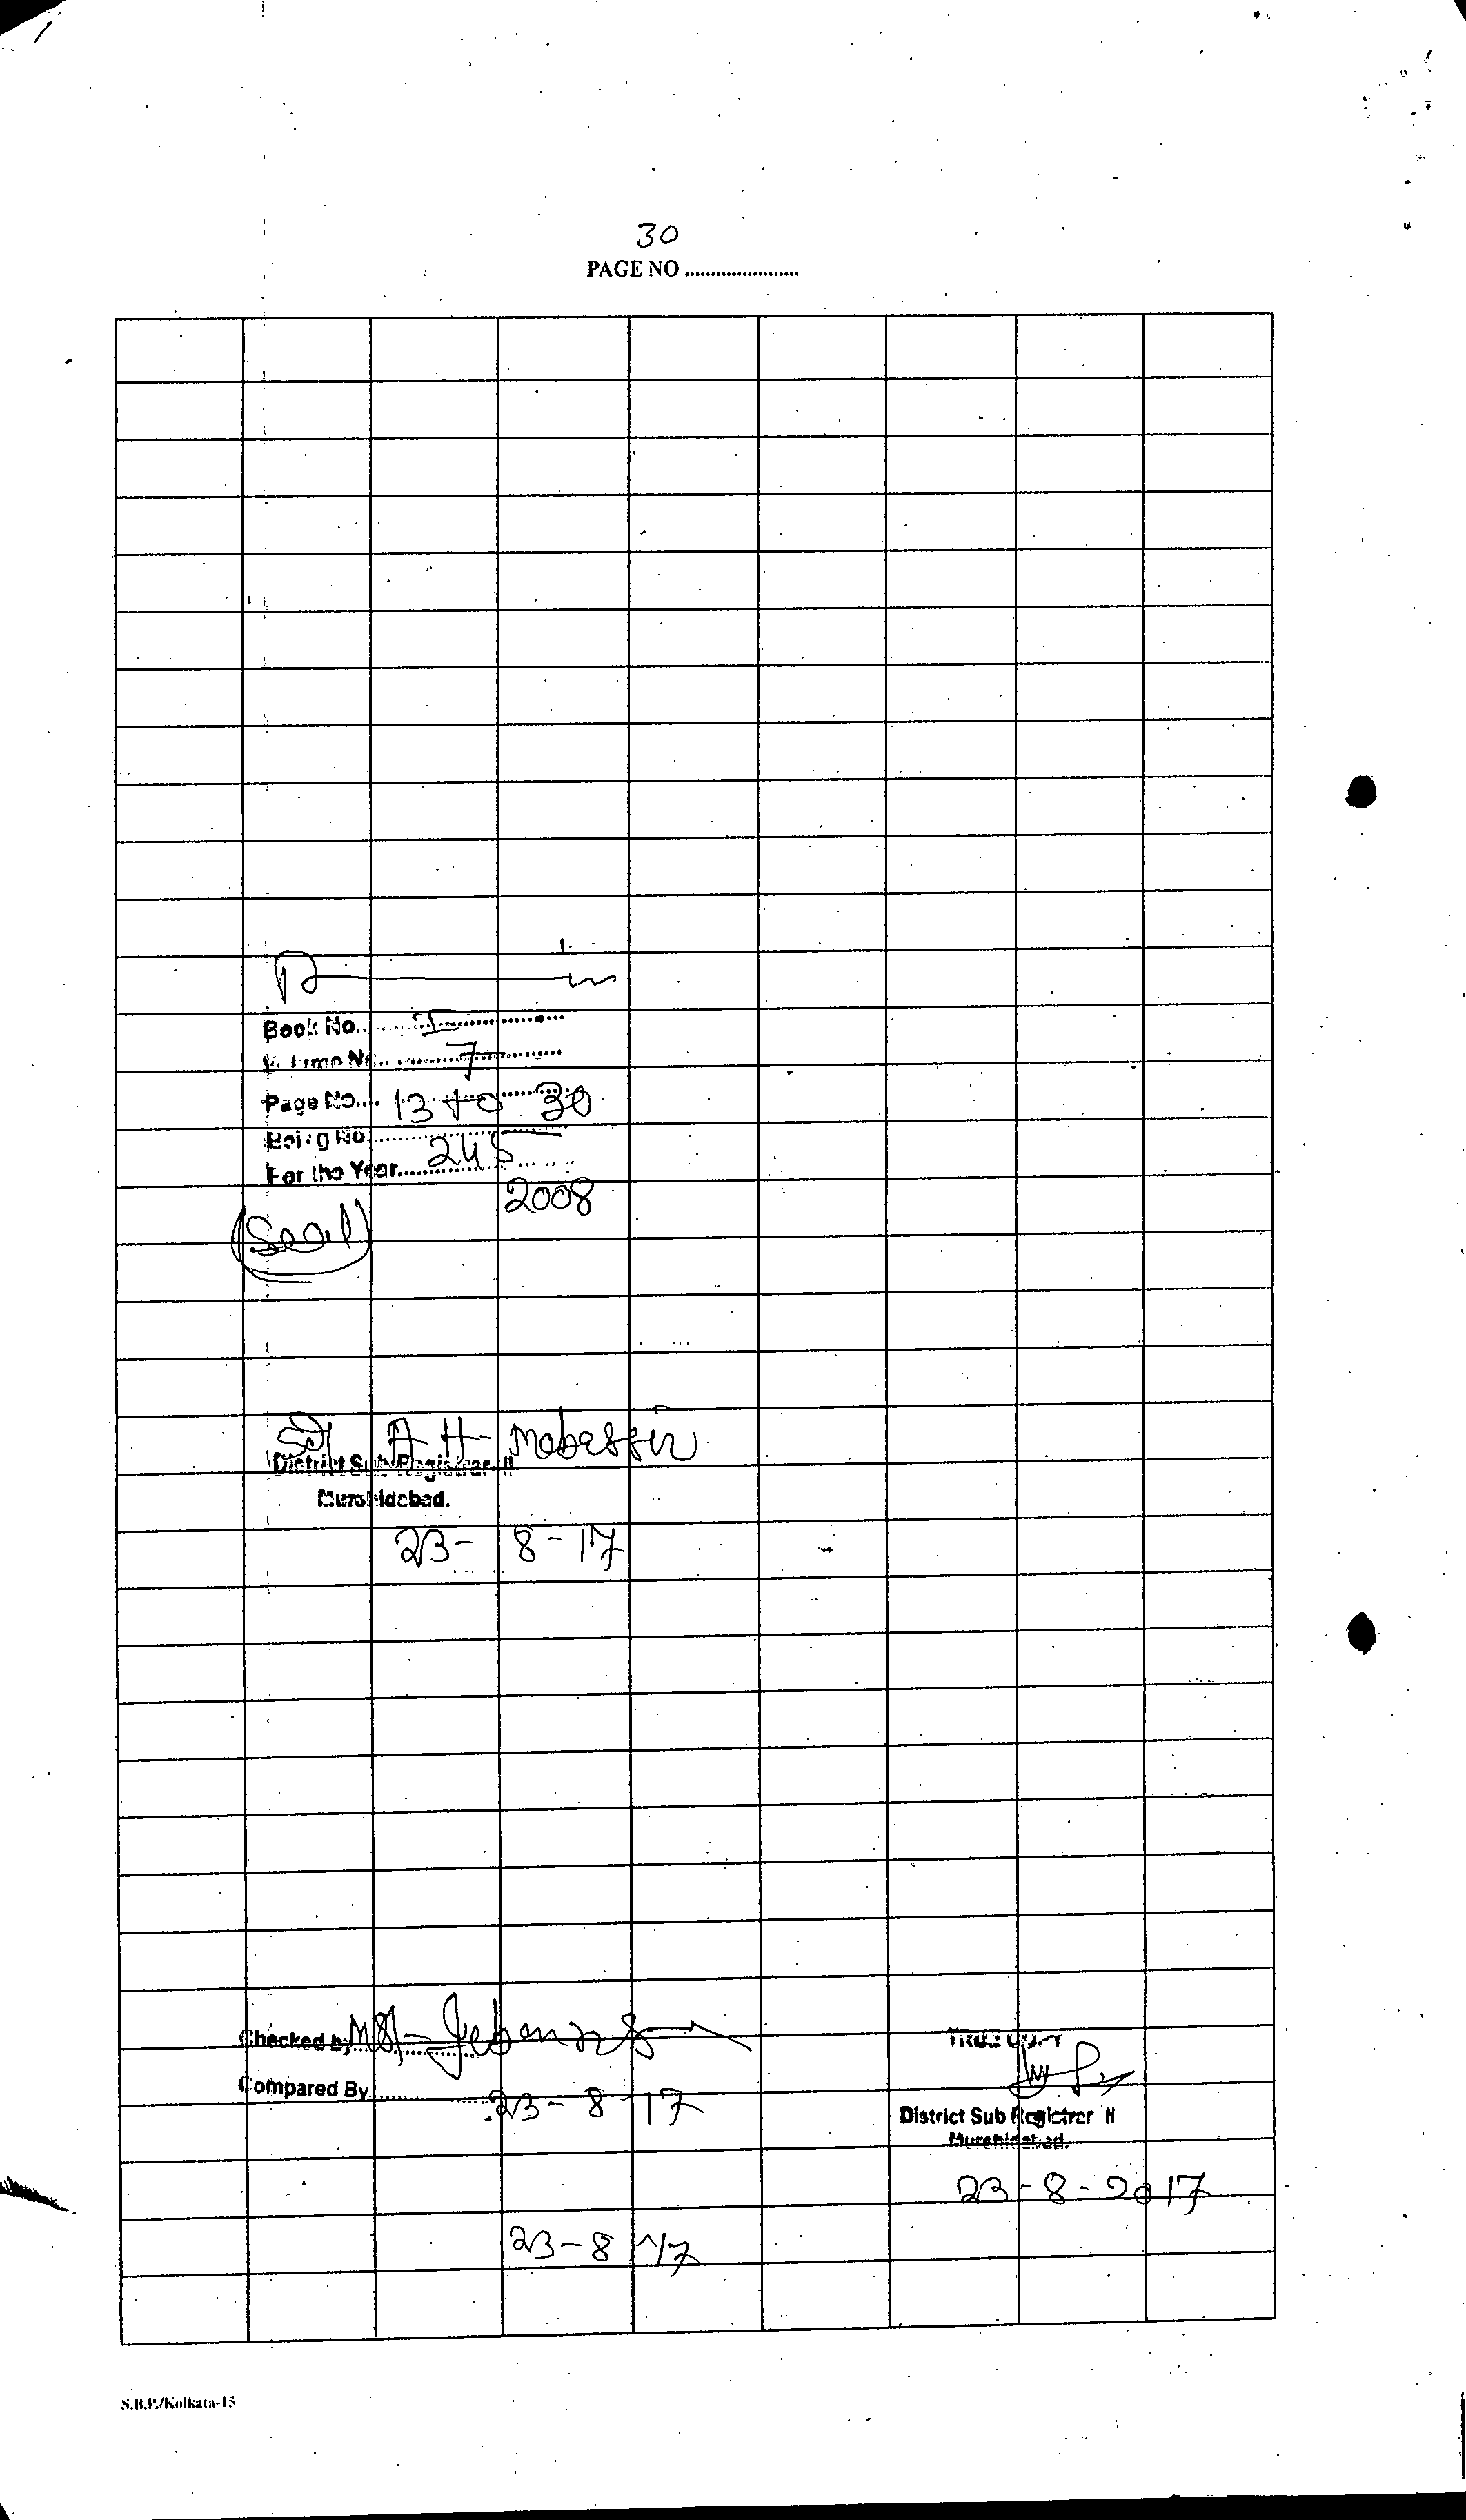 30
PAGE NO ......................
Book No.. I
Volume No. 7
Page No.... 13 to 30
Being No. 245
For the Year.... 2008
(Seal)
Sd/ A H- Mobassir
District Sub Registrar-II
Murshidabad.
23-8-17
Checked by
Compared By
23-8-17
23-8-17
TRUE COPY
District Sub Registrar II
Murshidabad.
23-8-2017
S.B.P./Kolkata-15